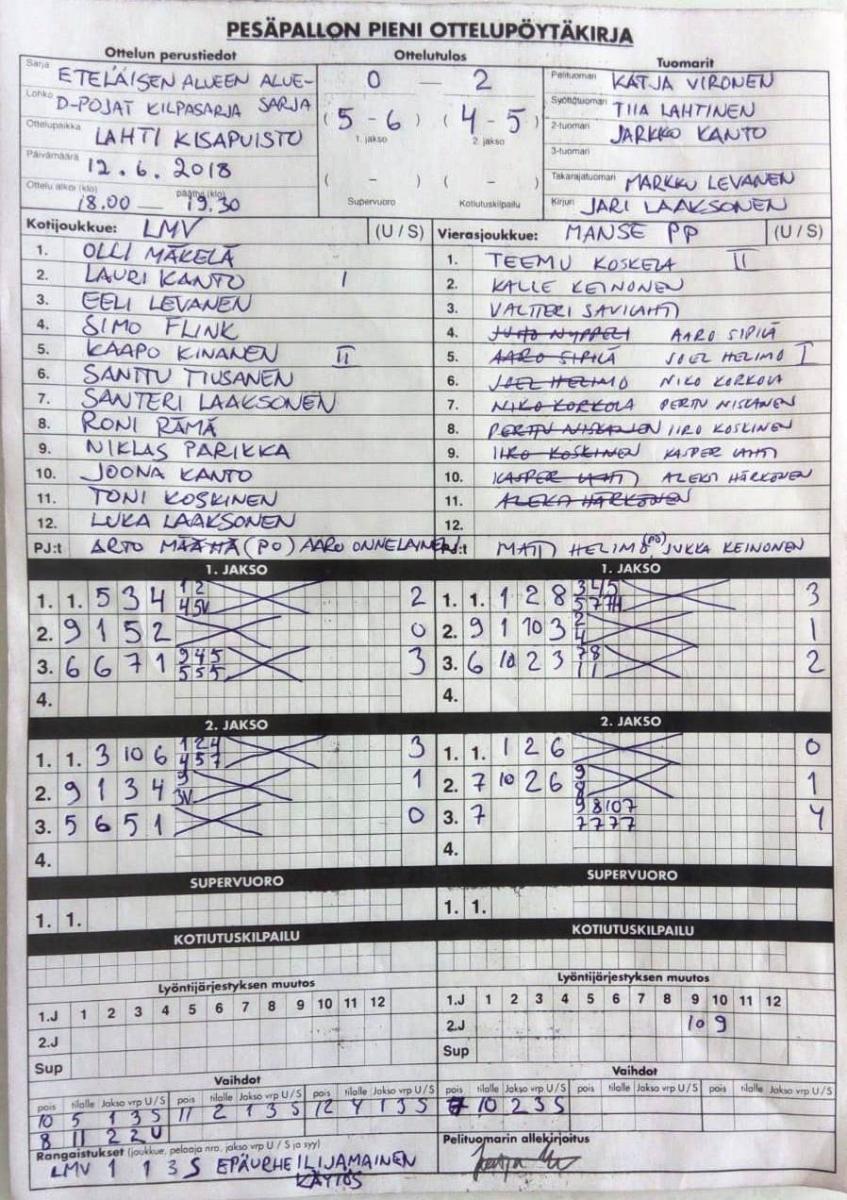 PESÄPALLON PIENI OTTELUPÖYTÄKIRJA
Ottelun perustiedot
Sarja ETELÄISEN ALUEEN ALUE-
SARJA
Lohko D-POJAT KILPASARJA
Ottelupaikka LAHTI KISAPUISTO
Päivämäärä 12.6.2018
Ottelu alkoi (klo) päättyi (klo)
18.00 — 19.30
Ottelutulos
0 — 2
(5 - 6) (4 - 5)
1. jakso 2. jakso
( - ) ( - )
Supervuoro Kotiutuskilpailu
Tuomarit
Pelituomari KATJA VIRONEN
Syöttötuomari TIIA LAHTINEN
2-tuomari JARKKO KANTO
3-tuomari
Takarajatuomari MARKKU LEVANEN
Kirjuri JARI LAAKSONEN
Kotijoukkue: LMV (U / S)
1. OLLI MÄKELÄ
2. LAURI KANTO I
3. EELI LEVANEN
4. SIMO FLINK
5. KAAPO KINANEN II
6. SANTTU TIUSANEN
7. SANTERI LAAKSONEN
8. RONI RÄMÄ
9. NIKLAS PARIKKA
10. JOONA KANTO
11. TONI KOSKINEN
12. LUKA LAAKSONEN
PJ:t ARTO (PO) AARO ONNELAINEN
Vierasjoukkue: MANSE PP (U / S)
1. TEEMU KOSKELA II
2. KALLE KEINONEN
3. VALTTERI SAVILAHTI
4. JUHO NYPPELI AARO SIPILÄ
5. AARO SIPILÄ JOEL HELIMO I
6. JOEL HELIMO NIKO KORKOLA
7. NIKO KORKOLA PERTTU NISKANEN
8. PERTTU NISKANEN IIRO KOSKINEN
9. IIRO KOSKINEN KASPER LAHTI
10. KASPER LAHTI ALEKSI HÄRKÖNEN
11. ALEKSI HÄRKÖNEN
12.
PJ:t MATTI HELIMO (PO), JUKKA KEINONEN
1. JAKSO
1. 1. 5 3 4 1 2 2
4 5V
2. 9 1 5 2 0
3. 6 6 7 1 9 4 5 3
5 5 5
4.
1. JAKSO
1. 1. 1 2 8 3 4 5 3
5 7
2. 9 1 10 3 2 1
4
3. 6 10 2 3 7 8 2
1 1
4.
2. JAKSO
1. 1. 3 10 6 1 2 4 3
4 5 7
2. 9 1 3 4 9 1
3V
3. 5 6 5 1 0
4.
2. JAKSO
1. 1. 1 2 6 0
2. 7 10 2 6 9 1
8
3. 7 9 8 10 7 4
7 7 7 7
4.
SUPERVUORO
1. 1.
SUPERVUORO
1. 1.
KOTIUTUSKILPAILU
KOTIUTUSKILPAILU
Lyöntijärjestyksen muutos
1.J 1 2 3 4 5 6 7 8 9 10 11 12
2.J
Sup
Lyöntijärjestyksen muutos
1.J 1 2 3 4 5 6 7 8 9 10 11 12
2.J 10 9
Sup
Vaihdot
pois tilalle Jakso vrp U / S pois tilalle Jakso vrp U / S pois tilalle Jakso vrp U / S
10 5 1 3 S 11 2 1 3 S 12 4 1 3 S
8 11 2 2 U
Vaihdot
pois tilalle Jakso vrp U / S pois tilalle Jakso vrp U / S pois tilalle Jakso vrp U / S
10 2 3 S
Rangaistukset (joukkue, pelaaja nro, jakso vrp U / S ja syy)
LMV 1 1 3 S EPÄURHEILIJAMAINEN
KÄYTÖS
Pelituomarin allekirjoitus